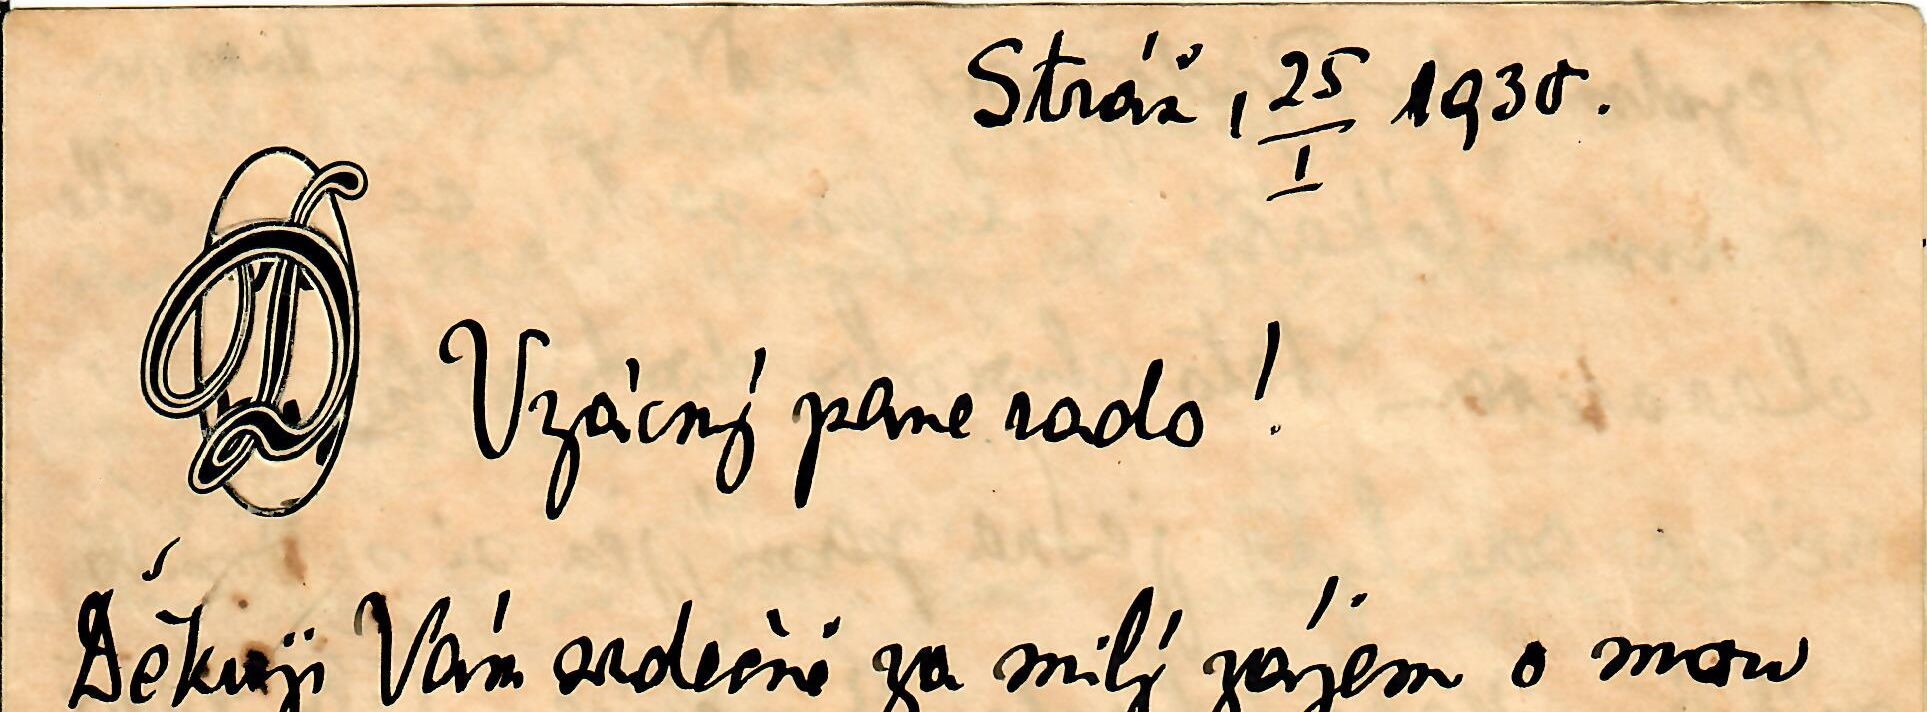 Stráž, 25/I 1930.
D
Vzácný pane rado!
Děkuji Vám srdečně za milý zájem o mou